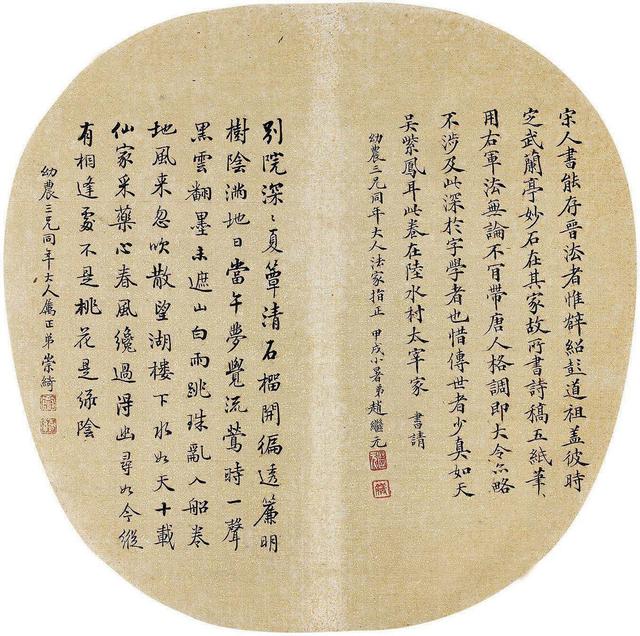 宋人書能存晉法者惟薛紹彭道祖蓋彼時
定武蘭亭妙石在其家故所書詩稿五紙筆
用右軍法無論不肎帶唐人格調即大令亦略
不涉及此深於字學者也惜傳世者少真如天
吳紫鳳耳此卷在陸水村太宰家 書請
幼農三兄同年大人法家指正 甲戌小暑弟趙繼元
別院深〻夏簟清石榴開徧透簾明
樹陰滿地日當午夢覺流鶯時一聲
黑雲翻墨未遮山白雨跳珠亂入船卷
地風來忽吹散望湖樓下水如天十載
仙家采藥心春風纔過得幽尋如今縱
有相逢處不是桃花是綠陰
幼農三兄同年大人屬正弟崇綺